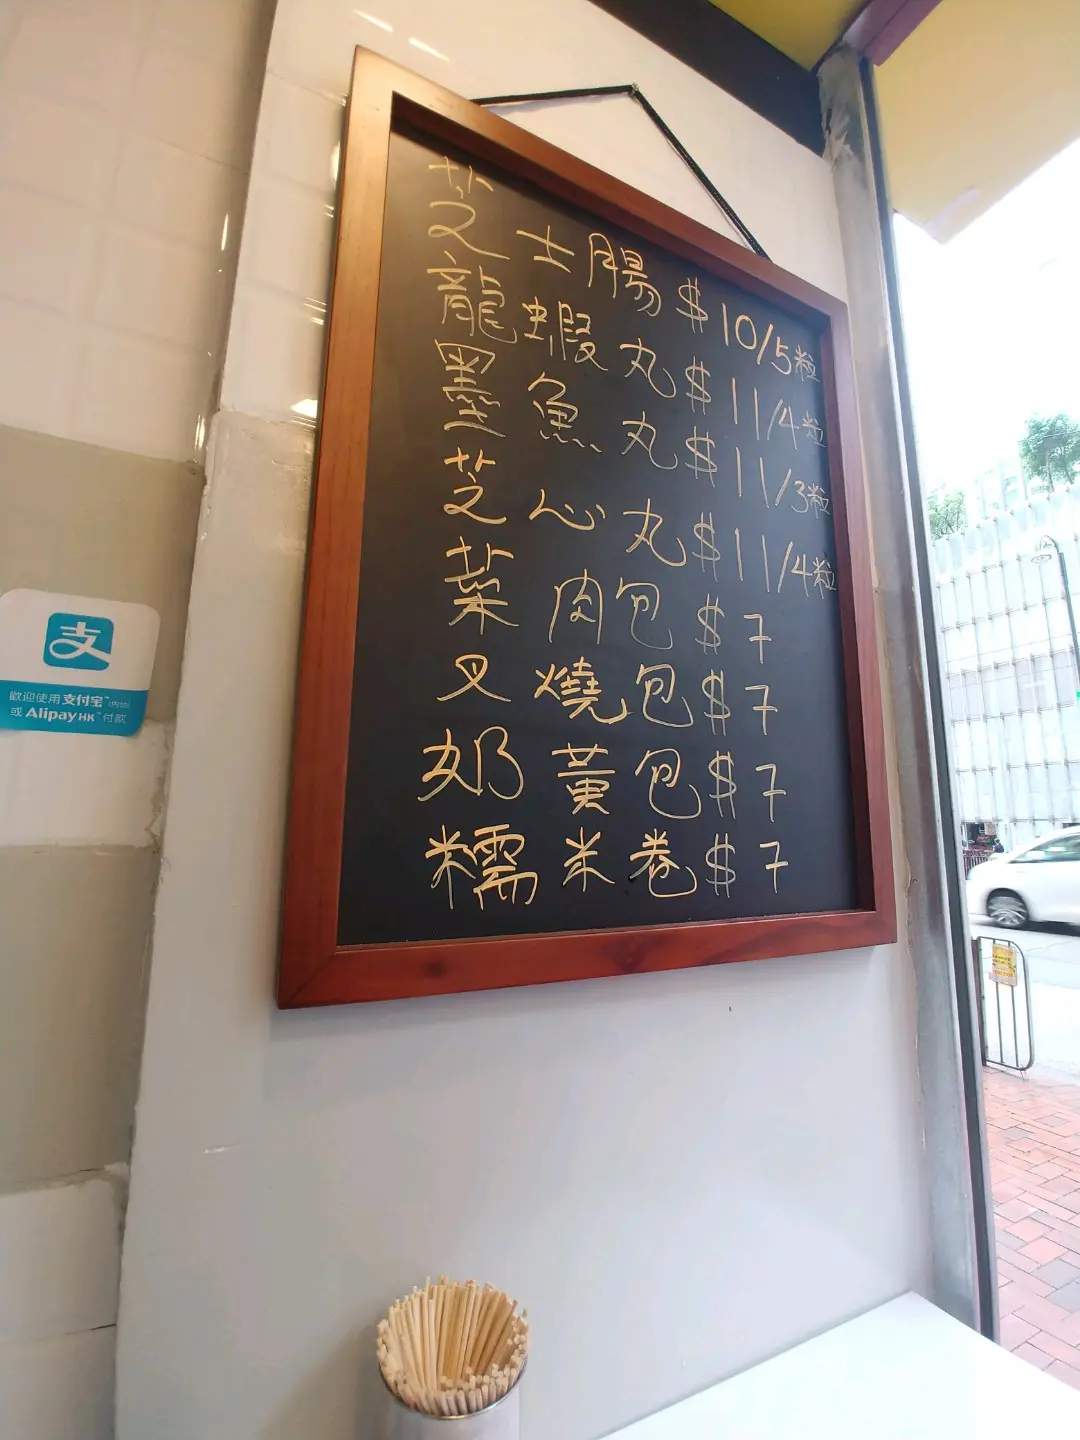 芝士腸 $10/5粒
龍蝦丸 $11/4粒
墨魚丸 $11/3粒
芝心丸 $11/4粒
菜肉包 $7
叉燒包 $7
奶黃包 $7
糯米卷 $7
支
歡迎使用支付宝™(内地)
或 AlipayHK™ 付款